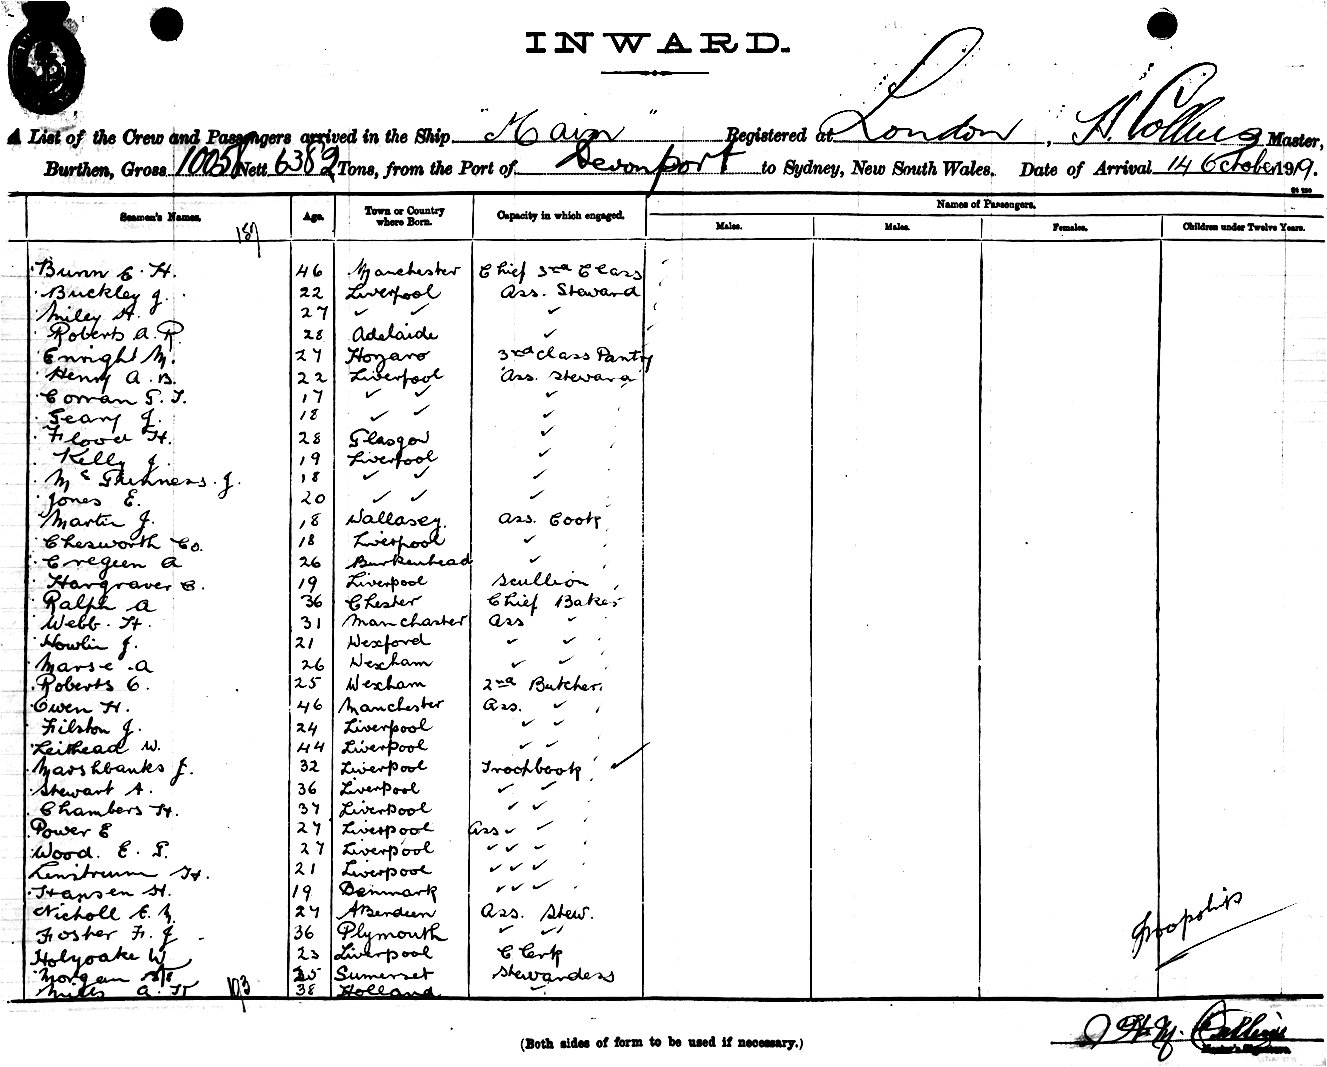 INWARD.
A List of the Crew and Passengers arrived in the Ship "Main" Registered at London, H. Collins Master,
Burthen, Gross 10058 Nett 6389 Tons, from the Port of Devonport to Sydney, New South Wales. Date of Arrival 14 October 1919.
Seamen's Names. Age. Town or Country where Born. Capacity in which engaged. Names of Passengers.
Males. Males. Females. Children under Twelve Years.
187
Bunn E. H. 46 Manchester Chief 3rd Class
Buckley J. 22 Liverpool Ass. Steward
Miley A. 27 ✓ ✓ ✓
Roberts A. R. 28 Adelaide ✓
Enright M. 27 3rd Class Pantry
Henry A. B. 22 Liverpool Ass. Steward
Corran T. 17 ✓ ✓ ✓
Geary J. 18 ✓ ✓ ✓
Flood H. 28 Glasgow ✓
Kelly J. 19 Liverpool ✓
J. 18 ✓ ✓ ✓
Jones E. 20 ✓ ✓ ✓
Martin J. 18 Wallasey Ass. Cook
Chesworth Co. 18 Liverpool ✓
Cregeen A 26 Burkenhead ✓
Hargraver C. 19 Liverpool Scullion
Ralph A 36 Chester Chief Baker
Webb H. 31 Manchaster Ass ✓
Howlin J. 21 Wexford ✓ ✓
Marse A 26 Wexham ✓ ✓
Roberts C. 25 Wexham 2nd Butcher.
Owen H. 46 Manchester Ass. ✓
Filston J. 24 Liverpool ✓ ✓
Leithead W. 44 Liverpool ✓ ✓
Marshbanks J. 32 Liverpool Troopcook ✓
Stewart A. 36 Liverpool ✓ ✓
Chambers H. 37 Liverpool ✓ ✓
Power E 27 Liverpool Ass ✓ ✓
Wood. E. T. 27 Liverpool ✓ ✓ ✓
Linstrum H. 21 Liverpool ✓ ✓ ✓
Hansen H. 19 Denmark ✓ ✓ ✓
Nicholl E. M. 27 Aberdeen Ass. Stew.
Foster F. J 36 Plymouth ✓ ✓
Holyoake W 23 Liverpool C Clerk
Morgan 25 Sumerset Stewardess
Mills A. H 193 38 Holland ✓
H. M. Collins
Master's Signature.
(Both sides of form to be used if necessary.)